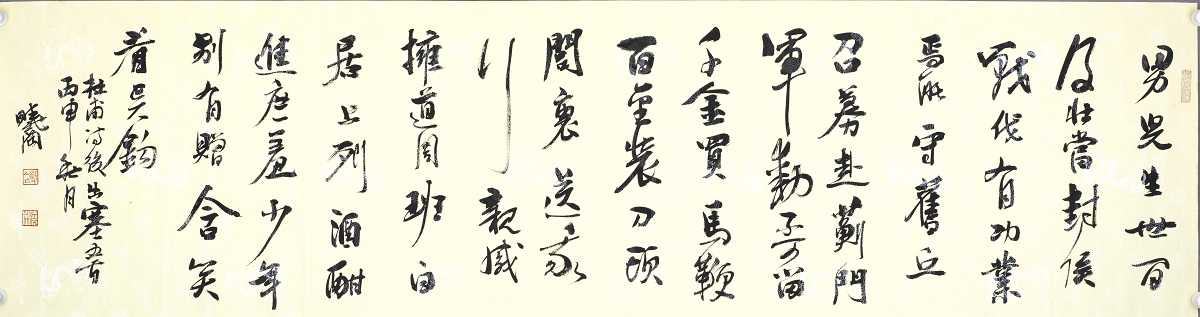 男兒生世間
及壯當封侯
戰伐有功業
焉能守舊丘
召募赴薊門
軍動不可留
千金買馬鞭
百金裝刀頭
閭裏送我
行親戚
擁道周班白
居上列酒酣
進庶羞少年
別有贈含笑
看吳鉤
杜甫詩後出塞五首
丙申月
曉